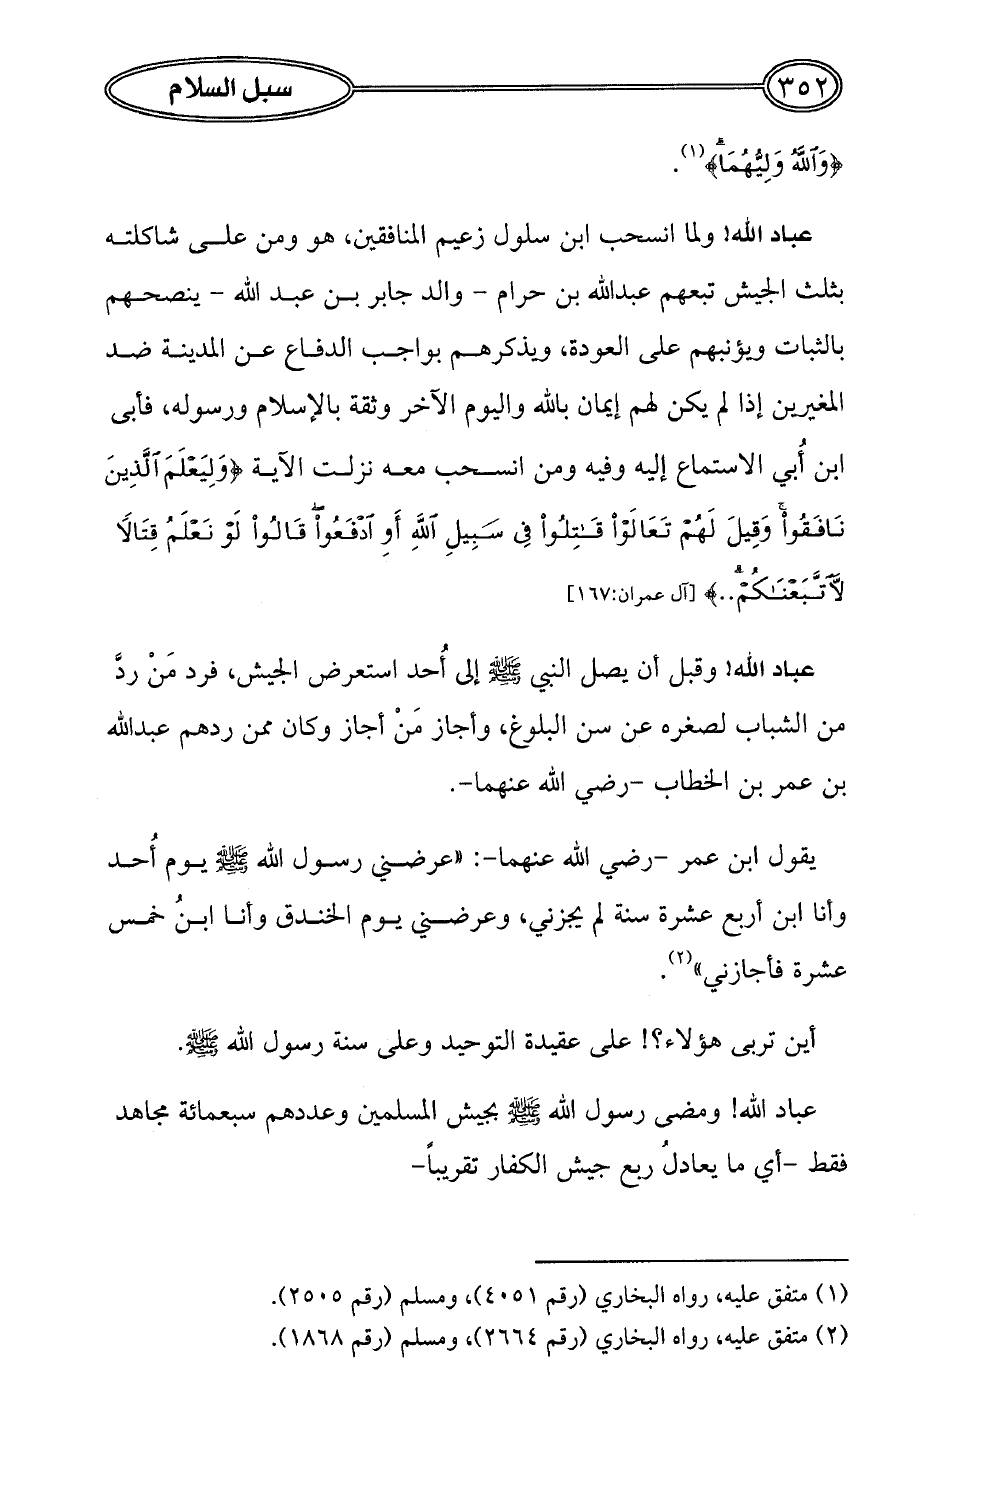 ٣٥٢
سبل السلام
﴿وَٱللَّهُ وَلِيُّهُمَاۗ﴾(١).
عباد الله! ولما انسحب ابن سلول زعيم المنافقين، هو ومن على شاكلته
بثلث الجيش تبعهم عبدالله بن حرام - والد جابر بن عبد الله - ينصحهم
بالثبات ويؤنبهم على العودة، ويذكرهم بواجب الدفاع عن المدينة ضد
المغيرين إذا لم يكن لهم إيمان بالله واليوم الآخر وثقة بالإسلام ورسوله، فأبى
ابن أُبي الاستماع إليه وفيه ومن انسحب معه نزلت الآية ﴿وَلِيَعْلَمَ ٱلَّذِينَ
نَافَقُوا۟ۚ وَقِيلَ لَهُمْ تَعَالَوْا۟ قَٰتِلُوا۟ فِى سَبِيلِ ٱللَّهِ أَوِ ٱدْفَعُوا۟ۖ قَالُوا۟ لَوْ نَعْلَمُ قِتَالًا
لَّٱتَّبَعْنَٰكُمْۗ..﴾ [آل عمران:١٦٧]
عباد الله! وقبل أن يصل النبي ﷺ إلى أُحد استعرض الجيش، فرد مَنْ ردَّ
من الشباب لصغره عن سن البلوغ، وأجاز مَنْ أجاز وكان ممن ردهم عبدالله
بن عمر بن الخطاب -رضي الله عنهما-.
يقول ابن عمر -رضي الله عنهما-: «عرضني رسول الله ﷺ يوم أُحد
وأنا ابن أربع عشرة سنة لم يجزني، وعرضني يوم الخندق وأنا ابنُ خمس
عشرة فأجازني»(٢).
أين تربى هؤلاء؟! على عقيدة التوحيد وعلى سنة رسول الله ﷺ.
عباد الله! ومضى رسول الله ﷺ بجيش المسلمين وعددهم سبعمائة مجاهد
فقط -أي ما يعادلُ ربع جيش الكفار تقريباً-
(١) متفق عليه، رواه البخاري (رقم ٤٠٥١)، ومسلم (رقم ٢٥٠٥).
(٢) متفق عليه، رواه البخاري (رقم ٢٦٦٤)، ومسلم (رقم ١٨٦٨).